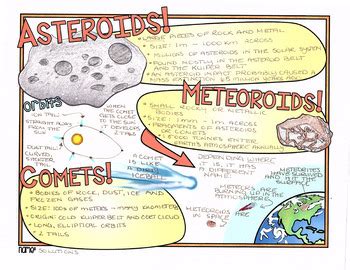 ASTEROIDS!
• LARGE PIECES OF ROCK AND METAL
• SIZE: 1m - 1000 km ACROSS
• MILLIONS OF ASTEROIDS IN THE SOLAR SYSTEM
• FOUND MOSTLY IN THE ASTEROID BELT
AND THE KUIPER BELT
• AN ASTEROID IMPACT PROBABLY CAUSED A
MASS EXTINCTION 65 MILLION YEARS AGO
METEOROIDS!
• SMALL ROCKY OR METALLIC
BODIES
• SIZE: 1mm - 1m ACROSS
• FRAGMENTS OF ASTEROIDS
OR COMETS
• 15000 TONNES ENTER
EARTH'S ATMOSPHERE ANNUALLY
ORBITS
ION TAIL
STRAIGHT AWAY
FROM THE
SUN
DUST TAIL
CURVED,
SHORTER
TAIL
WHEN THE
COMET
GETS CLOSE
TO THE SUN
IT DEVELOPS
A COMET IS
LIKE
A DIRTY
ICEBALL
COMETS!
• BODIES OF ROCK, DUST, ICE AND
FROZEN GASES
• SIZE: 100s OF METERS → MANY KILOMETERS
• ORIGIN: COLD KUIPER BELT AND OORT CLOUD
• LONG, ELLIPTICAL ORBITS
• 2 TAILS
DEPENDING WHERE
IT IS IT HAS
A DIFFERENT
NAME
METEORITES HAVE
SURVIVED AND HIT
THE SURFACE
METEORS ARE
BURNING UP IN THE
ATMOSPHERE
METEOROIDS ARE
IN SPACE
NAME: SOLUTIONS